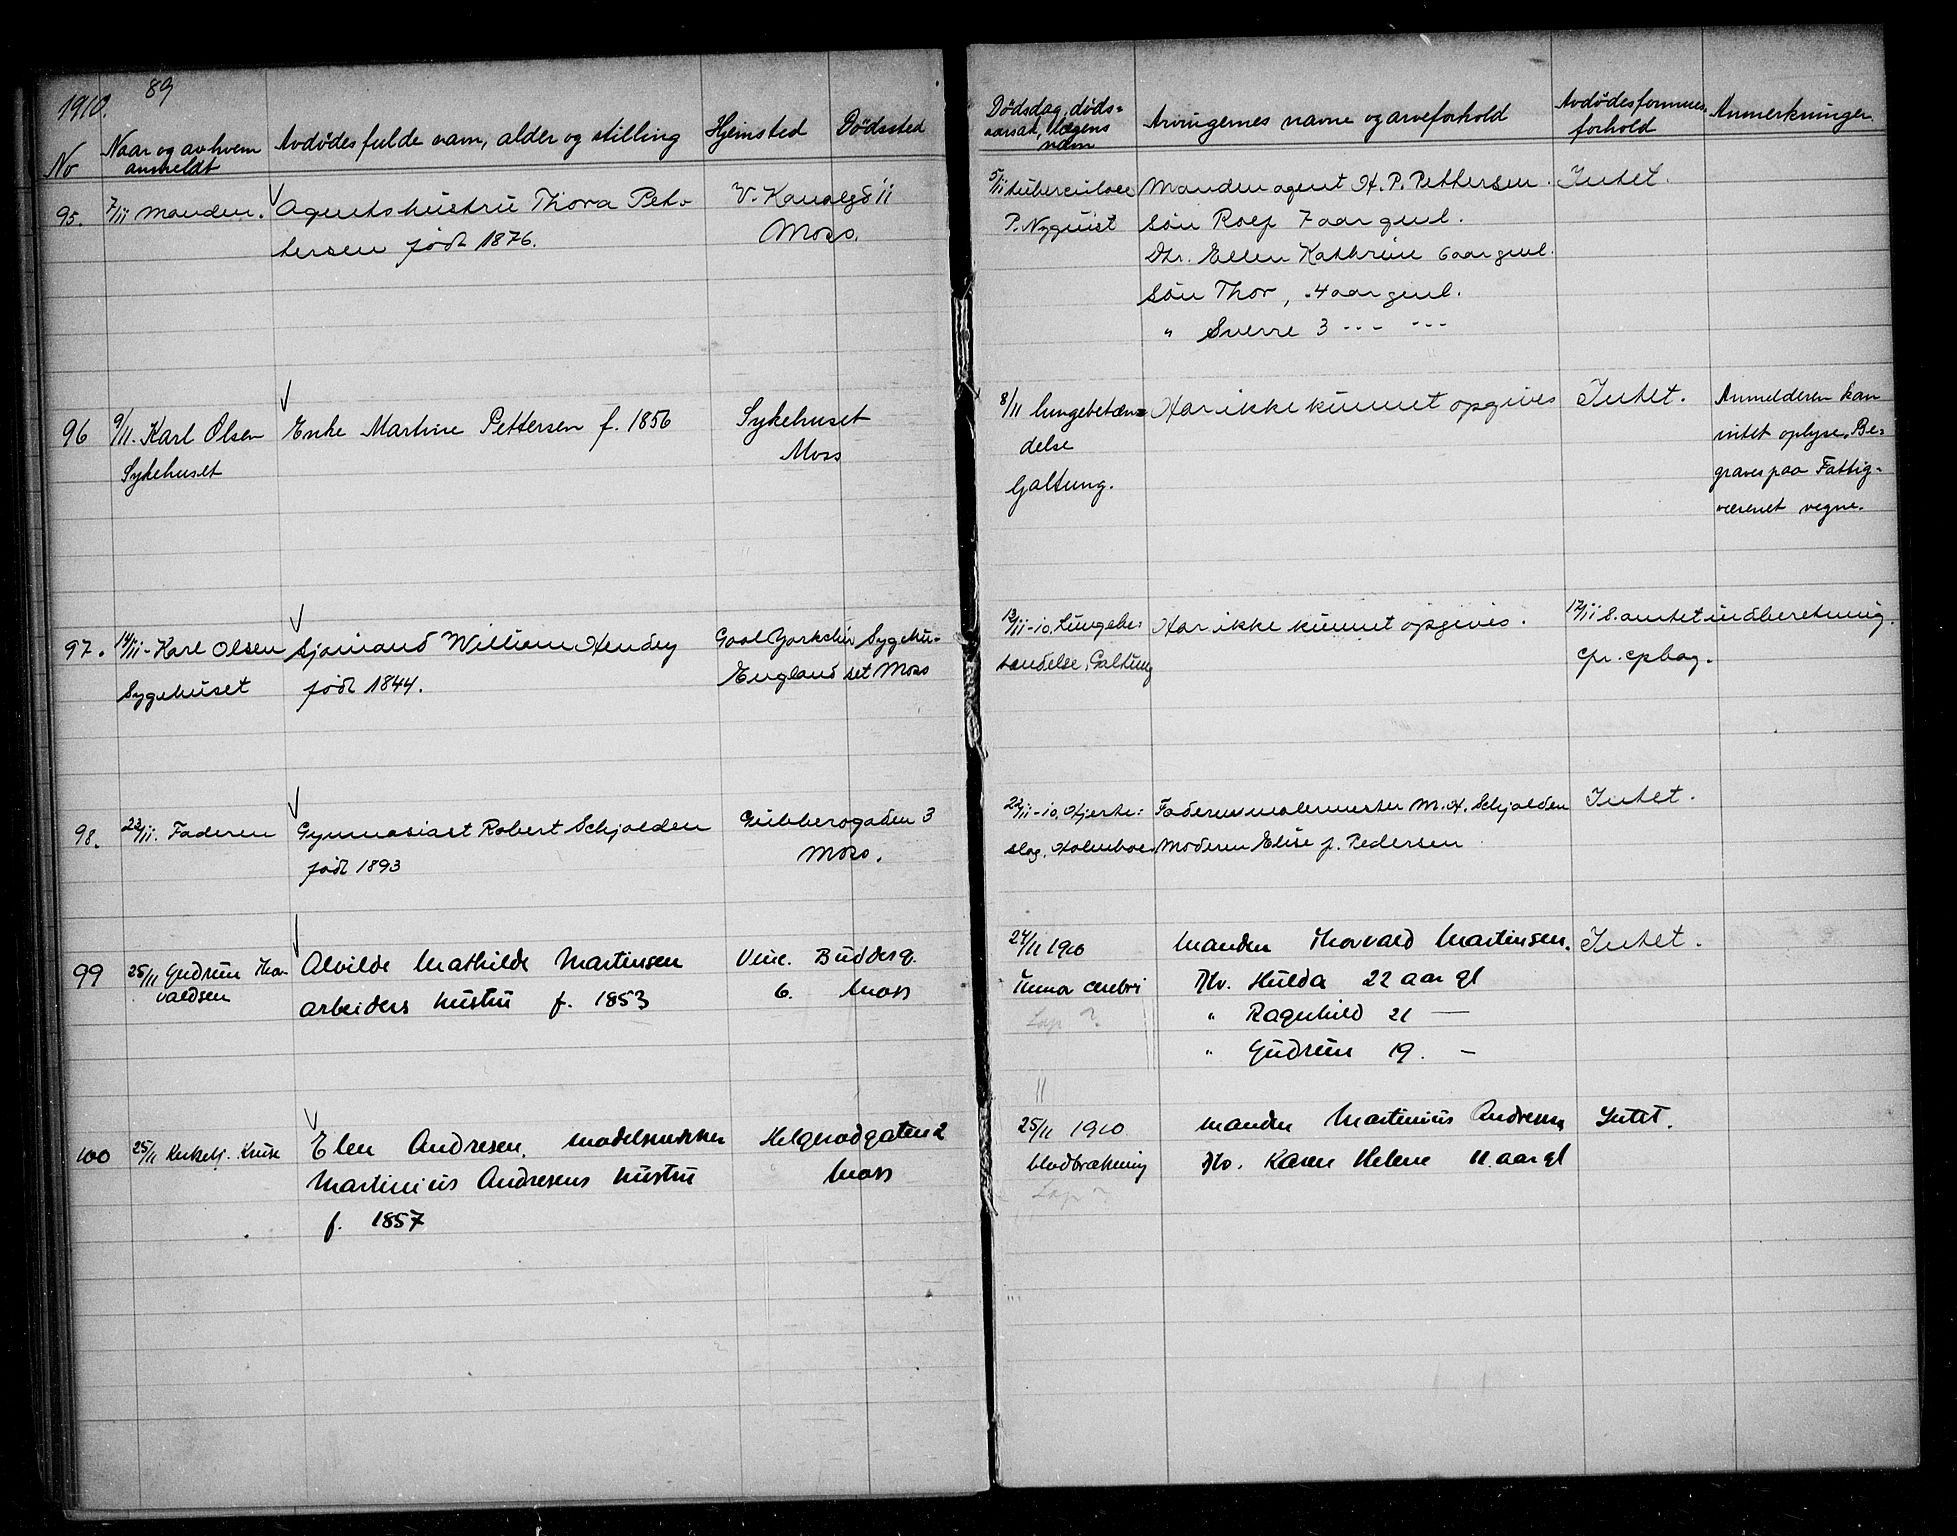 1910.
89
No
Naar og av hvem anmeldt
Avdødes fulde navn, alder og stilling
Hjemsted
Dødssted
Dødsdag, døds=aarsak, lægens navn
Arvingernes navne og arveforhold
Avdødes formues-forhold
Anmerkninger
95. 7/11 Manden. Agentshustru Thora Pet-
tersen født 1876.
V. Kanalgd 11
Moss.
5/11 tuberculose
P. Nyquist
Manden agent H. P. Pettersen.
Søn Rolf 7 aar gml.
Dtr. Ellen Kathrine 6 aar gml.
Søn Thor, 4 aar gml.
" Sverre 3 --- ---
Intet.
96 9/11. Karl Olsen
Sykehuset
Enke Martine Pettersen f. 1856
Sykehuset
Moss
8/11 lungebetæn=
delse
Galtung.
Har ikke kunnet opgives
Intet.
Anmelderen kan
intet oplyse. Be=
graves paa Fattig=
væsenet vegne.
97. 14/11 - Karl Olsen
Sygehuset
Sjømand William Hendry
født 1844.
Gool Yorkshire
England
Sygehu-
set Moss
13/11-10. Lungebe=
tændelse, Galtung
Har ikke kunnet opgives.
17/11 S. amtet indberetning.
cfr. cpbog.
98. 22/11. Faderen
Gymnasiast Robert Schjolden
født 1893
Gubberogaden 3
Moss.
22/11-10. Hjerte=
slag. Holmboe
Faderen malermester M. H. Schjolden
Moderen Elise f. Pedersen
Intet.
99 25/11 Gudrun Thor-
valdsen
Alvilde Mathilde Martinsen
arbeiders hustru f. 1853
Vinc. Buddesg.
6. Moss
24/11 1910
Tumor cerebri
Lap ?
Manden Thorvald Martinsen.
Dtr. Hulda 22 aar gl
" Ragnhild 21 —
" Gudrun 19. —
Intet.
100 25/11 Kirketj. Kruse
Elen Andresen, modelsnekker
Martinius Andresens hustru
f. 1857
Helgerødgaten 2
Moss
25/11 1910
blodbrækning
Lap ?
Manden Martinius Andresen
Dtr. Karen Helene 11 aar gl
Intet.